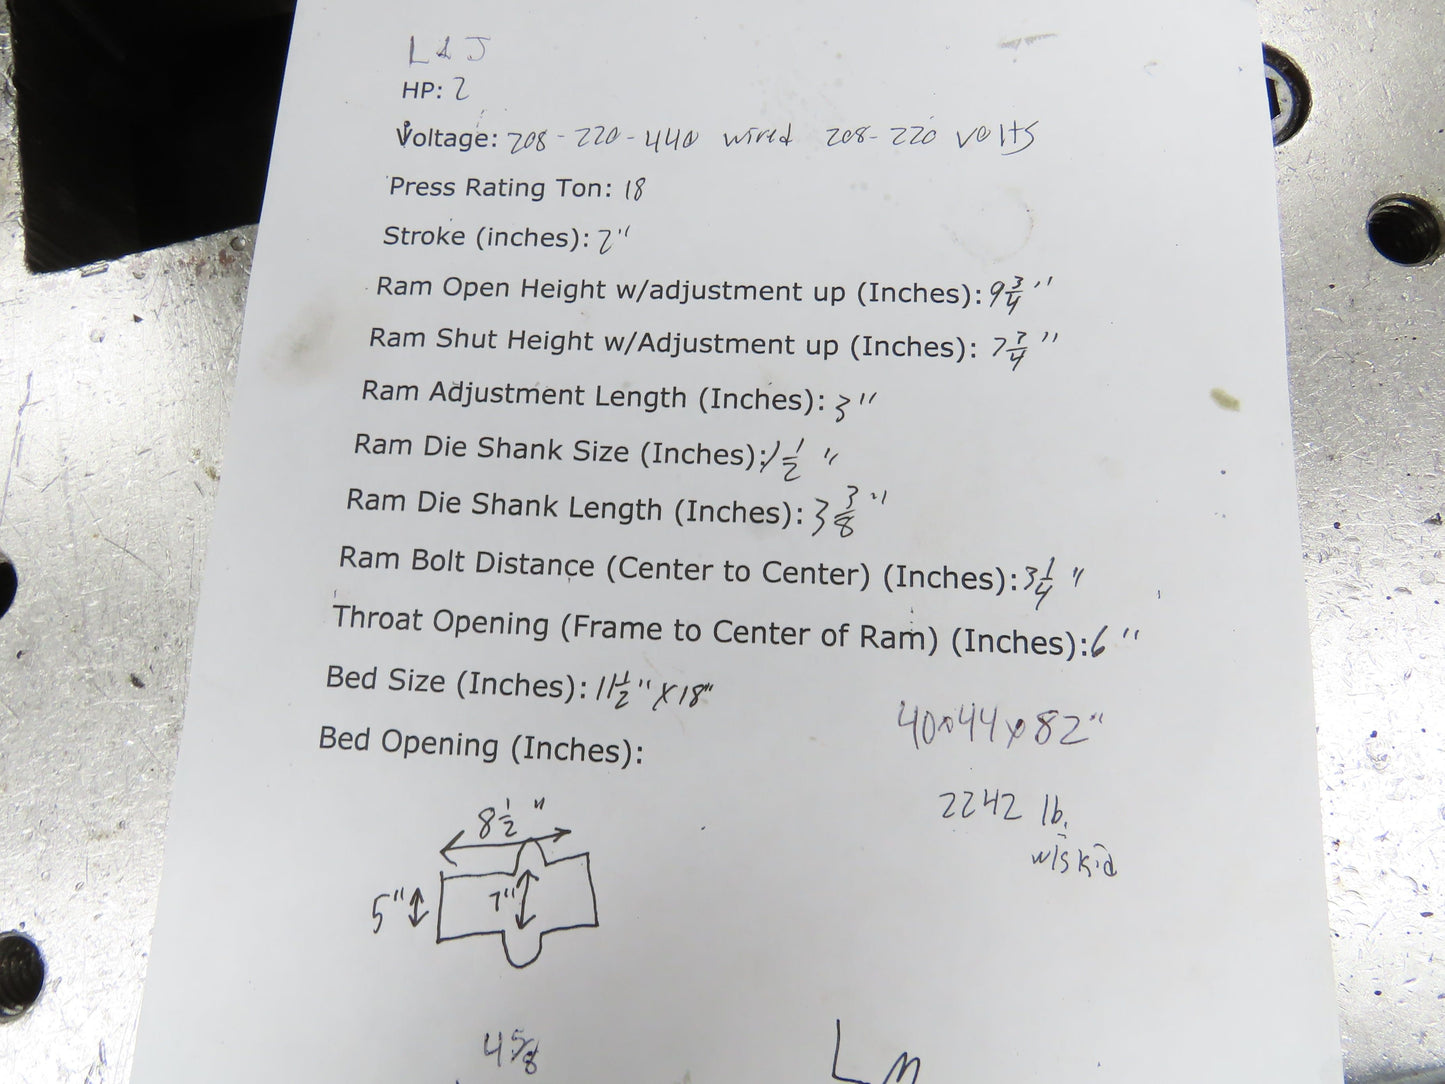 L & J
HP: 2
Voltage: 208 - 220 - 440 wired 208 - 220 volts
Press Rating Ton: 18
Stroke (inches): 2"
Ram Open Height w/adjustment up (Inches): 9 3/4"
Ram Shut Height w/Adjustment up (Inches): 7 3/4"
Ram Adjustment Length (Inches): 3"
Ram Die Shank Size (Inches): 1 1/2"
Ram Die Shank Length (Inches): 3 3/8"
Ram Bolt Distance (Center to Center) (Inches): 3 1/4"
Throat Opening (Frame to Center of Ram) (Inches): 6"
Bed Size (Inches): 11 1/2" x 18"
40x44x82"
Bed Opening (Inches):
2242 lb.
w/skid
8 1/2"
5" 7"
4 5/8